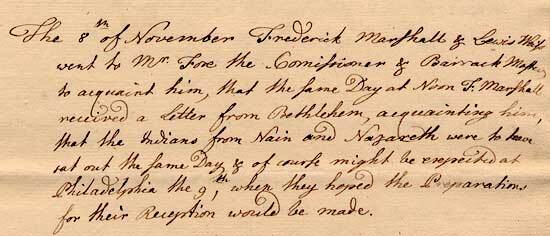 The 8th of November Frederick Marshall & Lewis Weiss
went to Mr. Fox the Comissioner & Barrack Master
to acquaint him, that the same Day at Noon F. Marshall
received a Letter from Bethlehem, acquainting him,
that the Indians from Nain and Nazareth were to have
sat out the same Day & of course might be expected at
Philadelphia the 9th, when they hoped the Preparations
for their Reception would be made.